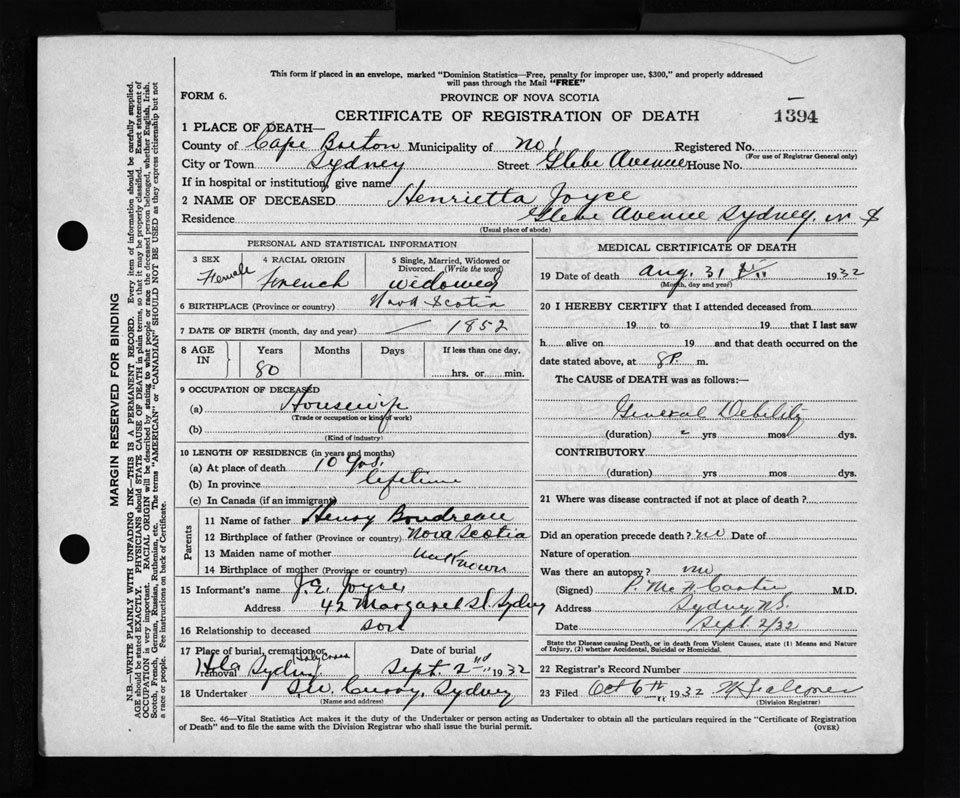 This form if placed in an envelope, marked "Dominion Statistics—Free, penalty for improper use, $300," and properly addressed
will pass through the Mail "FREE"
FORM 6.
PROVINCE OF NOVA SCOTIA
CERTIFICATE OF REGISTRATION OF DEATH
1394
1 PLACE OF DEATH—
County of Cape Breton Municipality of No 1 Registered No.
(For use of Registrar General only)
City or Town Sydney Street Glebe Avenue House No.
If in hospital or institution, give name
2 NAME OF DECEASED Henrietta Joyce
Residence Glebe Avenue Sydney, N S
(Usual place of abode)
PERSONAL AND STATISTICAL INFORMATION
3 SEX Female
4 RACIAL ORIGIN French
5 Single, Married, Widowed or Divorced. (Write the word) widowed
6 BIRTHPLACE (Province or country) Nova Scotia
7 DATE OF BIRTH (month, day and year) — 1852
8 AGE IN Years Months Days If less than one day,
80 hrs. or min.
9 OCCUPATION OF DECEASED
(a) Housewife
(Trade or occupation or kind of work)
(b)
(Kind of industry)
10 LENGTH OF RESIDENCE (in years and months)
(a) At place of death 10 yrs.
(b) In province lifetime
(c) In Canada (if an immigrant)
Parents
11 Name of father Henry Boudreau
12 Birthplace of father (Province or country) Nova Scotia
13 Maiden name of mother unknown
14 Birthplace of mother (Province or country)
15 Informant's name J.E. Joyce
Address 42 Margaret St. Sydney
16 Relationship to deceased son
17 Place of burial, cremation or removal Holy Cross Sydney
Date of burial Sept. 2nd 1932
18 Undertaker Curry, Sydney
(Name and address)
MEDICAL CERTIFICATE OF DEATH
19 Date of death Aug. 31 1932
(Month, day and year)
20 I HEREBY CERTIFY that I attended deceased from
19 to 19 that I last saw
h alive on 19 and that death occurred on the
date stated above, at 8P. m.
The CAUSE of DEATH was as follows:—
General Debility
(duration) yrs mos dys.
CONTRIBUTORY
(duration) yrs mos dys.
21 Where was disease contracted if not at place of death?
Did an operation precede death? no Date of
Nature of operation
Was there an autopsy? no
(Signed) M.D.
Address Sydney N.S.
Date Sept. 2/32
State the Disease causing Death, or in death from Violent Causes, state (1) Means and Nature
of Injury, (2) whether Accidental, Suicidal or Homicidal.
22 Registrar's Record Number
23 Filed Oct 6th 1932 Falconer
(Division Registrar)
Sec. 46—Vital Statistics Act makes it the duty of the Undertaker or person acting as Undertaker to obtain all the particulars required in the "Certificate of Registration
of Death" and to file the same with the Division Registrar who shall issue the burial permit.
(OVER)
MARGIN RESERVED FOR BINDING
N.B.—WRITE PLAINLY WITH UNFADING INK—THIS IS A PERMANENT RECORD. Every item of information should be carefully supplied.
AGE should be stated EXACTLY. PHYSICIANS should STATE CAUSE OF DEATH in plain terms, so that it may be properly classified. Exact statement of
OCCUPATION is very important. RACIAL ORIGIN will be described by stating to what people or race the deceased person belonged, whether English, Irish,
Scotch, French, German, Russian, Ruthenian, etc. The terms "AMERICAN" or "CANADIAN" SHOULD NOT BE USED as they express citizenship but not
a race or people. See instructions on back of Certificate.